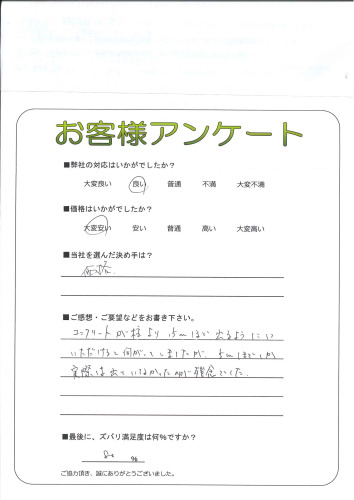 お客様アンケート
■弊社の対応はいかがでしたか?
大変良い 良い 普通 不満 大変不満
■価格はいかがでしたか?
大変安い 安い 普通 高い 大変高い
■当社を選んだ決め手は?
価格.
■ご感想・ご要望などをお書き下さい。
コンクリートが柱より 15cmほど出るように
いただけると伺がってしましたが、5cmほどしか
実際は出ていなかったのが残念でした.
■最後に、ズバリ満足度は何%ですか?
80 %
ご協力頂き、誠にありがとうございました。